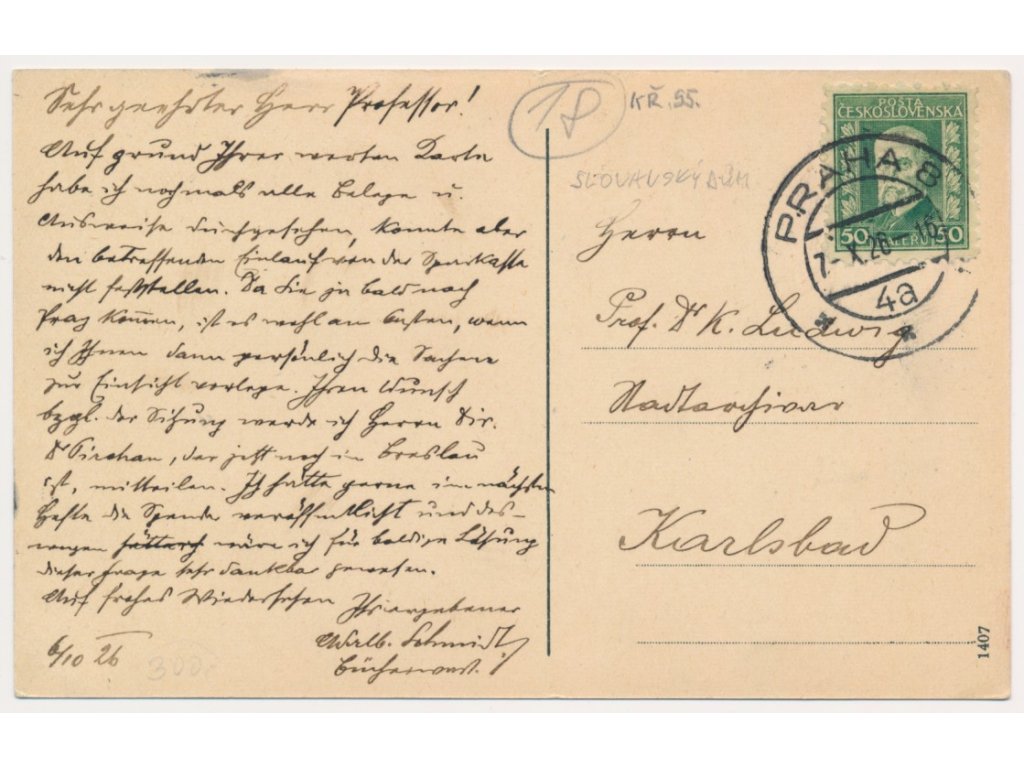 Sehr geehrter Herr Professor!
Auf grund Ihrer werten Karte
habe ich nochmals alle Belege u.
Ausweise durchgesehen, konnte aber
den betreffenden Einlauf von der Sparkasse
nicht feststellen. Da Sie ja bald nach
Prag kommen, ist es wohl am besten, wenn
ich Ihnen dann persönlich die Sachen
zur Einsicht vorlege. Ihren Wunsch
bzgl. der Sitzung werde ich Herrn Dir.
Dr Pirchan, der jetzt noch in Breslau
ist, mitteilen. Ich hätte gerne im nächsten
Hefte die Spender veröffentlicht und des-
wegen wäre ich für baldige Lösung
dieser Frage sehr dankbar gewesen.
Auf frohes Wiedersehen Ihr ergebener
Schmidt
6/10 26
300,-
18
KŘ. 55.
SLOVANSKÝ DŮM
POSTA
ČESKOSLOVENSKA
50 HALERU 50
PRAHA 8
7. X. 26 - 16
4a
Herrn
Prof. Dr K. Ludwig
Stadtarchivar
Karlsbad
1407